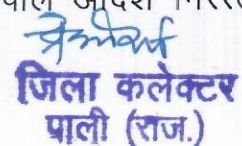 आदेश
जिला कलेक्टर
पाली (राज.)